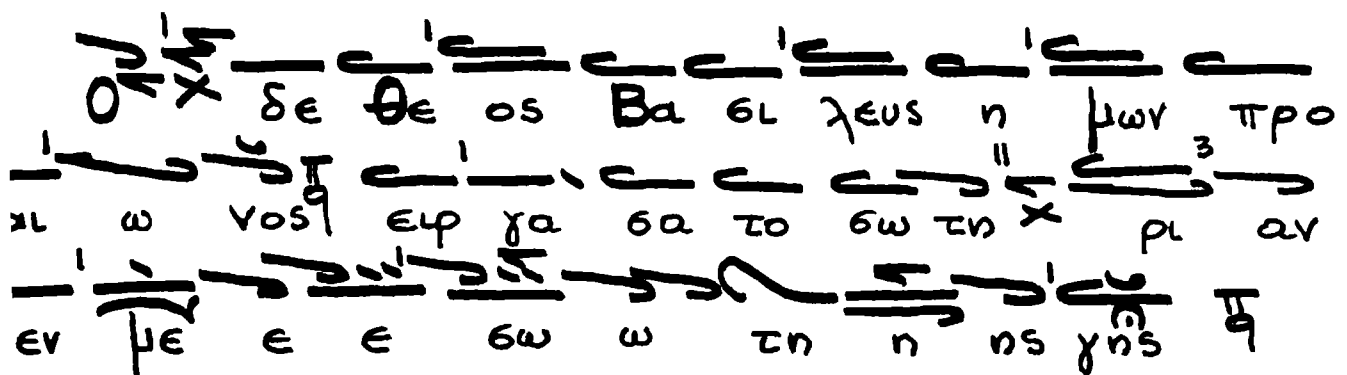 Ο δε θε os Βα σι λευς η μων προ
αι ω νος ειρ γα σα το σω τη ρι αν
εν με ε ε σω ω τη η ης γης